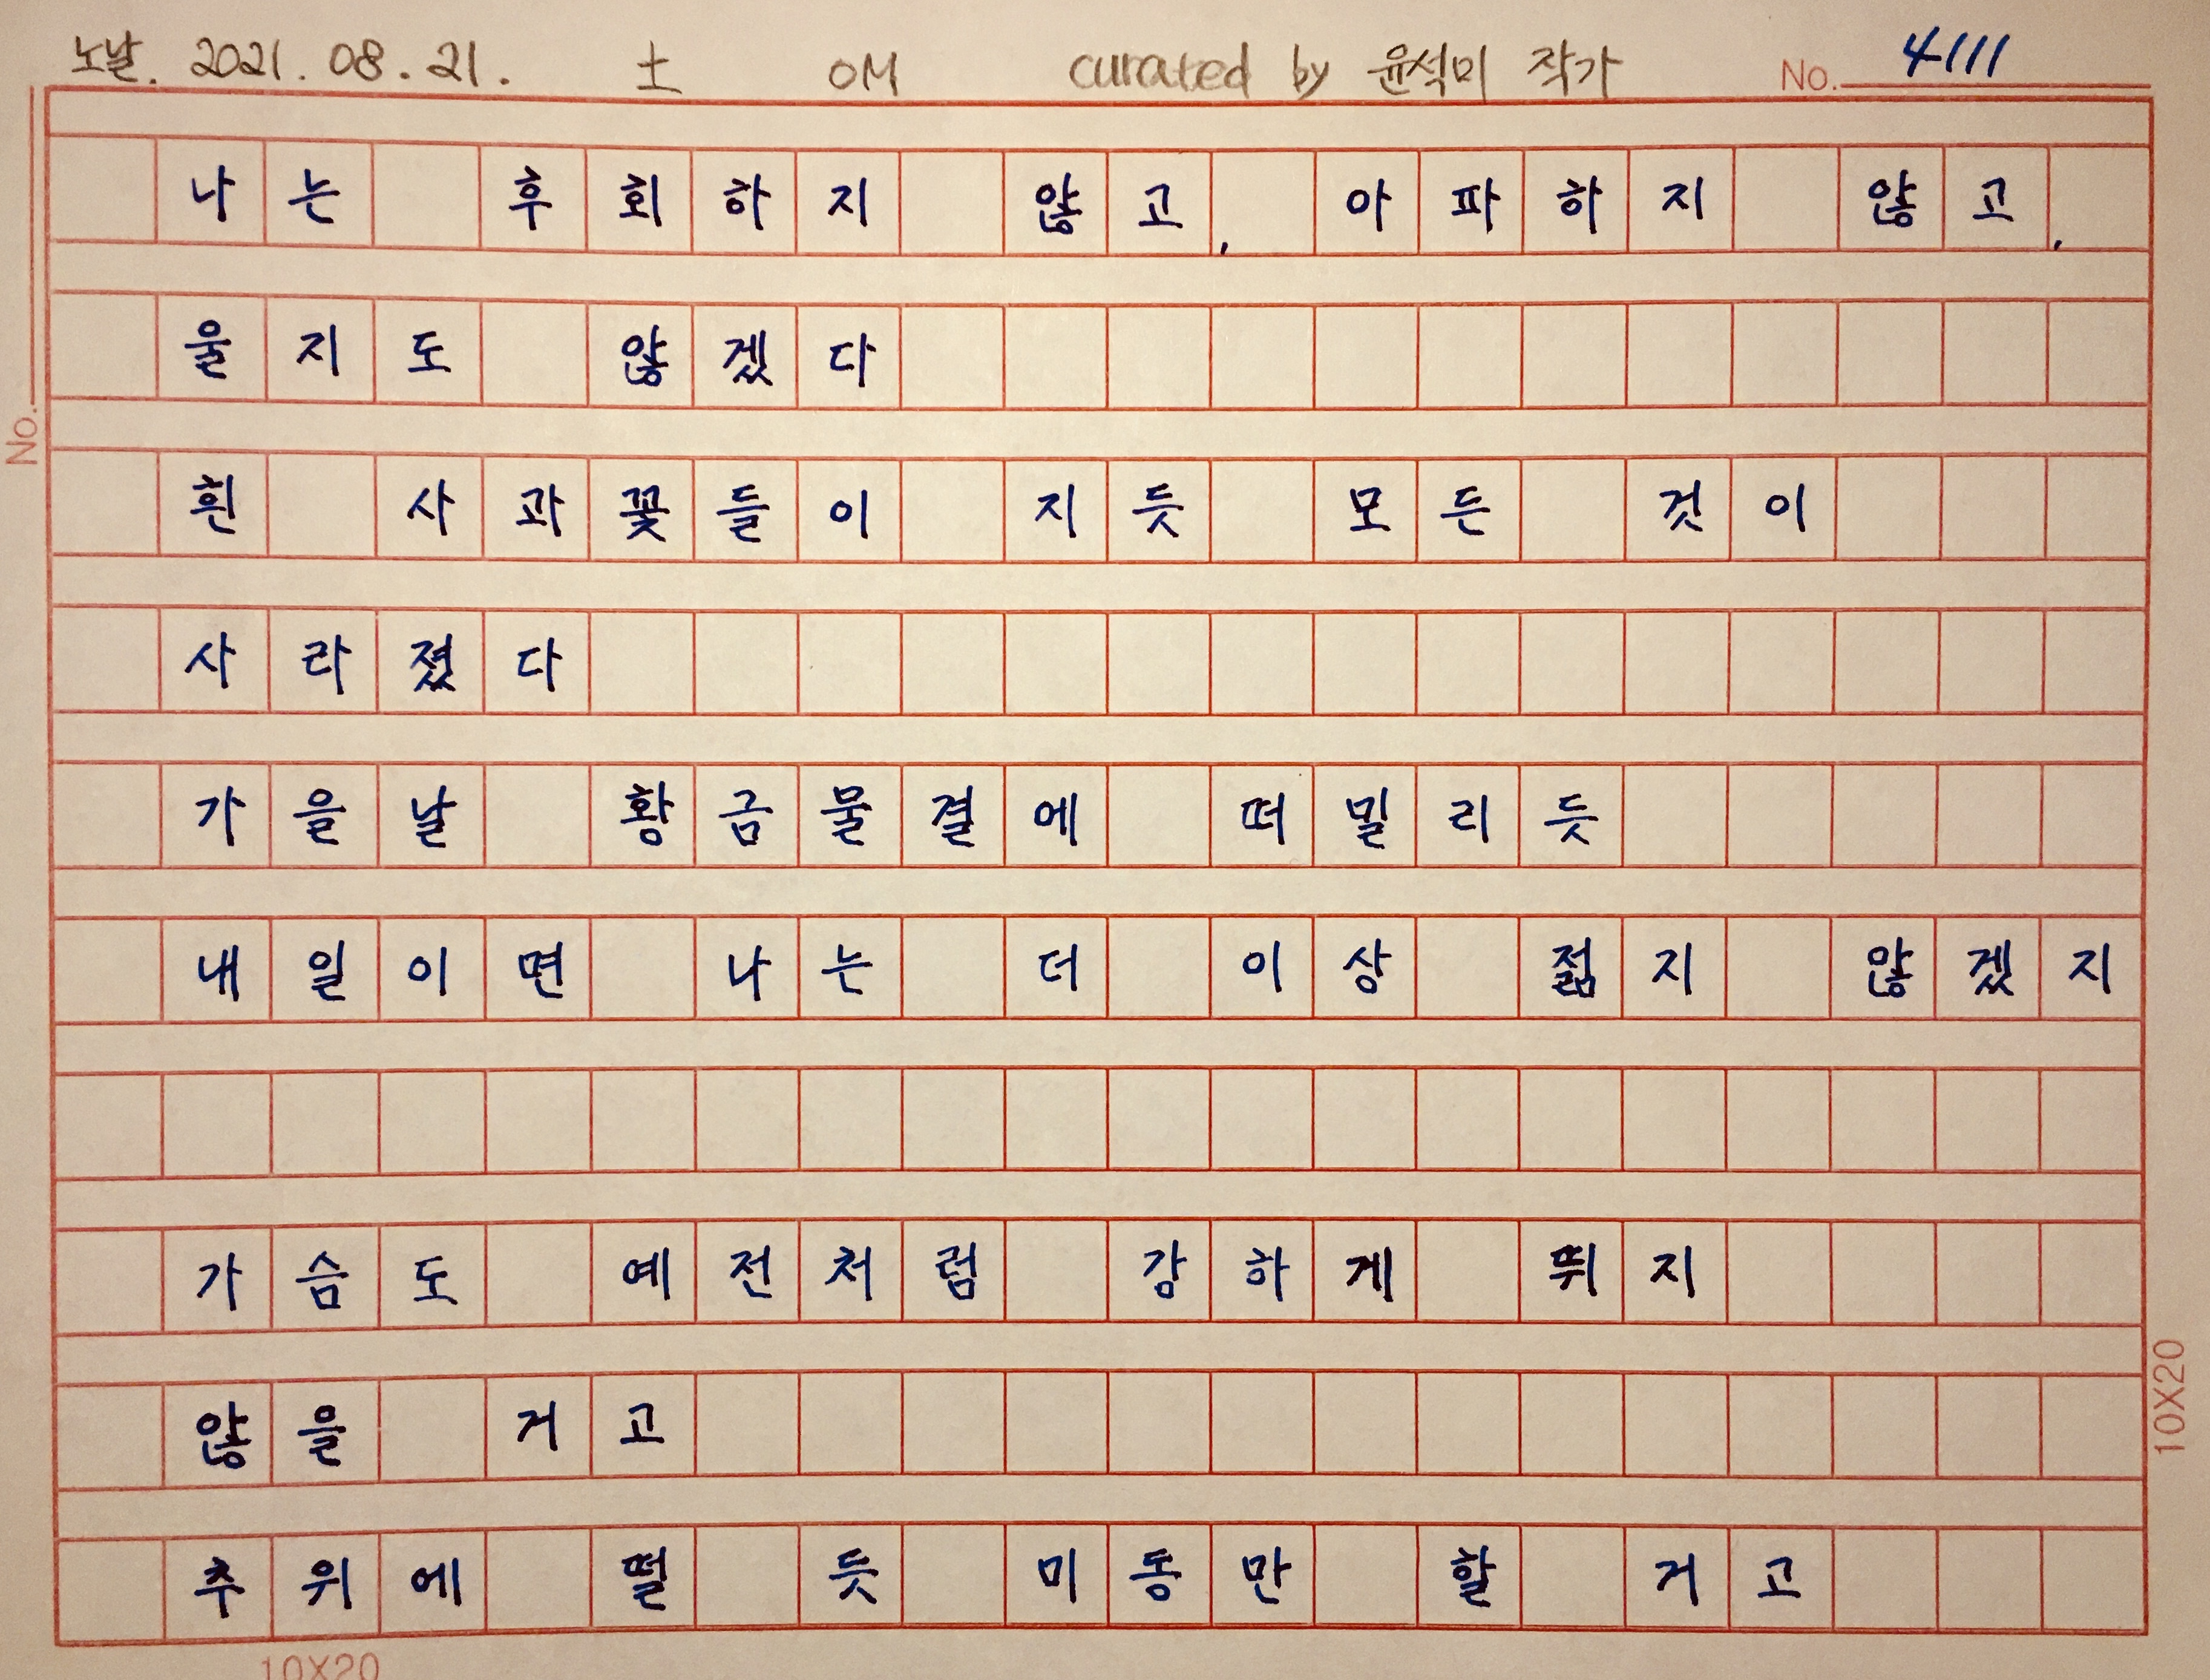 노날. 2021. 08. 21. 土 OM curated by 윤석미 작가 No. 4111
나는 후회하지 않고, 아파하지 않고,
울지도 않겠다
흰 사과꽃들이 지듯 모든 것이
사라졌다
가을날 황금물결에 떠밀리듯
내일이면 나는 더 이상 젊지 않겠지
가슴도 예전처럼 강하게 뛰지
않을 거고
추위에 떨 듯 미동만 할 거고
No.
10X20
10X20